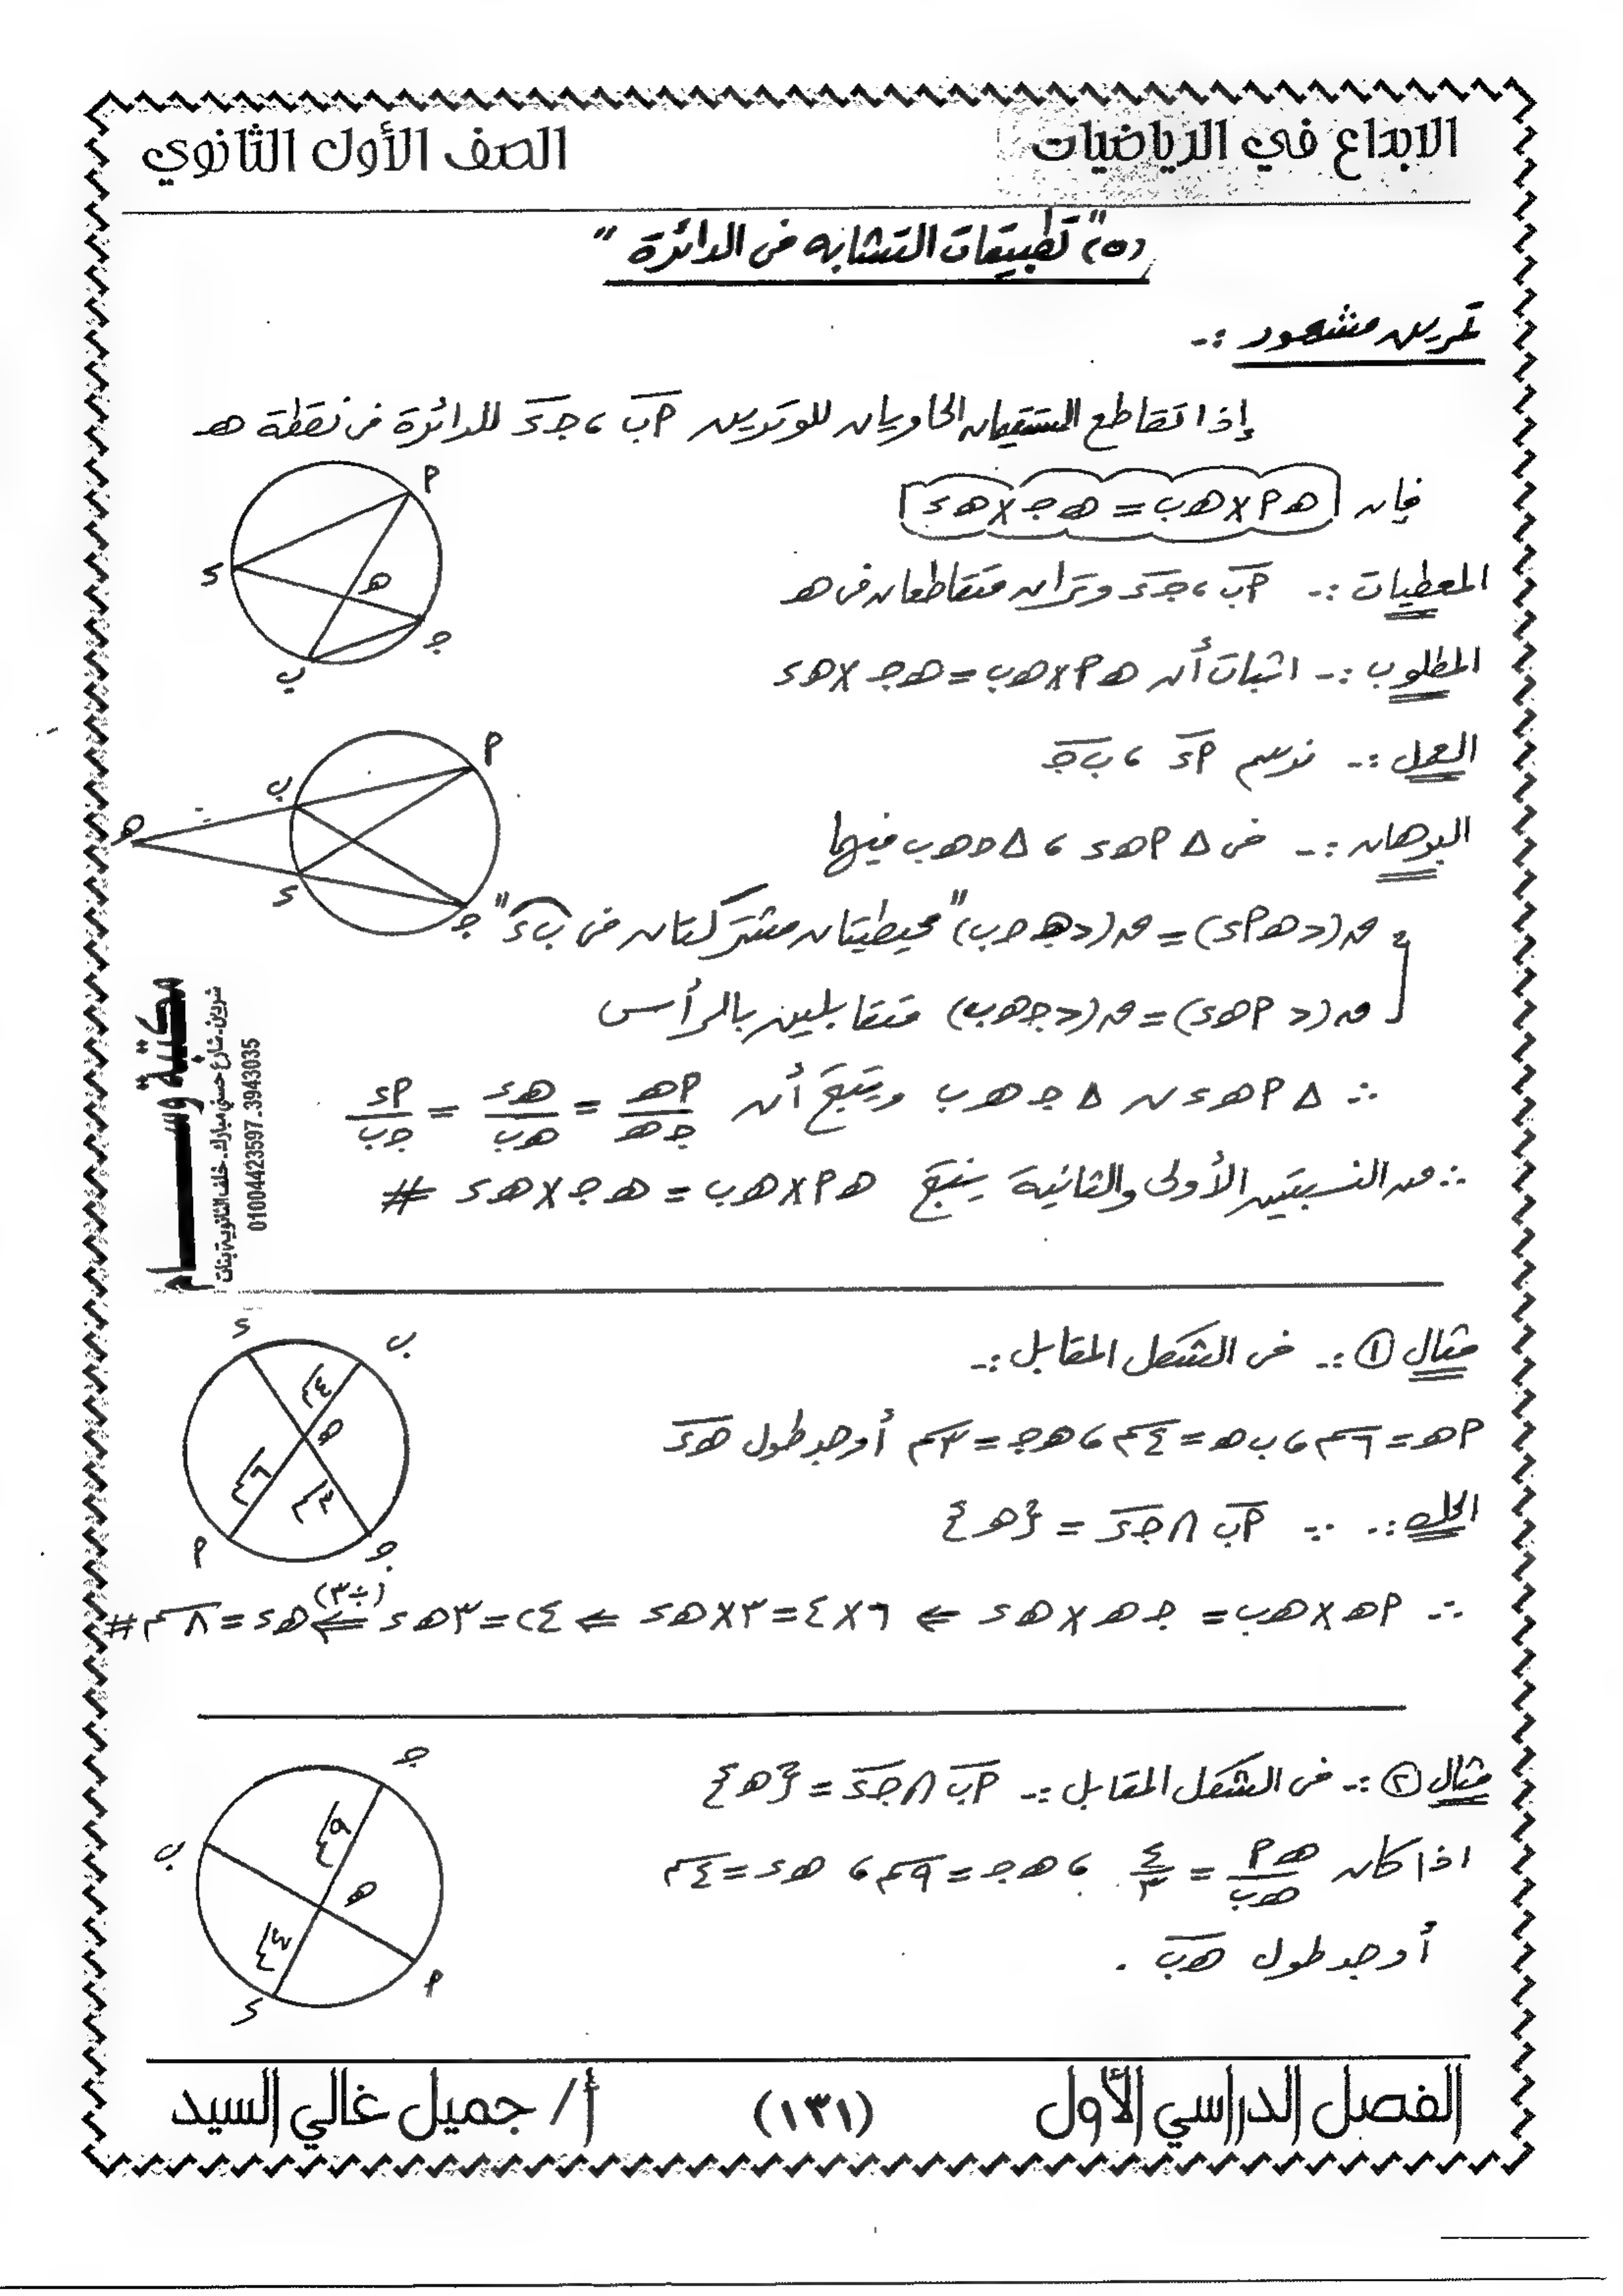 الابداع في الرياضيات
الصف الأول الثانوي
(٥) "تطبيقات التشابه فى الدائرة"
تمرين مشهور :-
إذا تقاطع المستقيمان الحاويان للوترين أب ، جـء للدائرة فى نقطة هـ
فإن هـأ × هـب = هـجـ × هـء
المعطيات :- أب ، جـء وتران متقاطعان فى هـ
المطلوب :- اثبات أن هـأ × هـب = هـجـ × هـء
العمل :- نرسم أء ، ب جـ
البرهان :- فى Δ أهـء ، Δ جـهـب فيها
ق(> هـأء) = ق(> هـجـب) "محيطيتان مشتركتان فى بء"
ق(> أهـء) = ق(> جـهـب) متقابلين بالرأس
∴ Δ أهـء ~ Δ جـهـب وينتج أن أهـ/جـهـ = هـء/هـب = أء/جـب
∴ من النسبتين الأولى والثانية ينتج هـأ × هـب = هـجـ × هـء #
مكتبة وســـام
شربين-شارع حسني مبارك-خلف الثانوية بنات
01004423597 . 3943035
مثال ① :- فى الشكل المقابل :-
أهـ = ٦سم ، ب هـ = ٤سم ، هـجـ = ٣سم أوجد طول هـء
الحل :- ∵ أب ∩ جـء = {هـ}
∴ أهـ × هـب = جـهـ × هـء ⇐ ٦ × ٤ = ٣ × هـء ⇐ ٢٤ = ٣هـء ⇐ (÷٣) هـء = ٨سم #
مثال ② :- فى الشكل المقابل :- أب ∩ جـء = {هـ}
اذا كان هـأ/هـب = ٤/٣ ، هـجـ = ٩سم ، هـء = ٤سم
أوجد طول هـب .
الفصل الدراسي الأول
(١٣١)
أ/ جميل غالي السيد